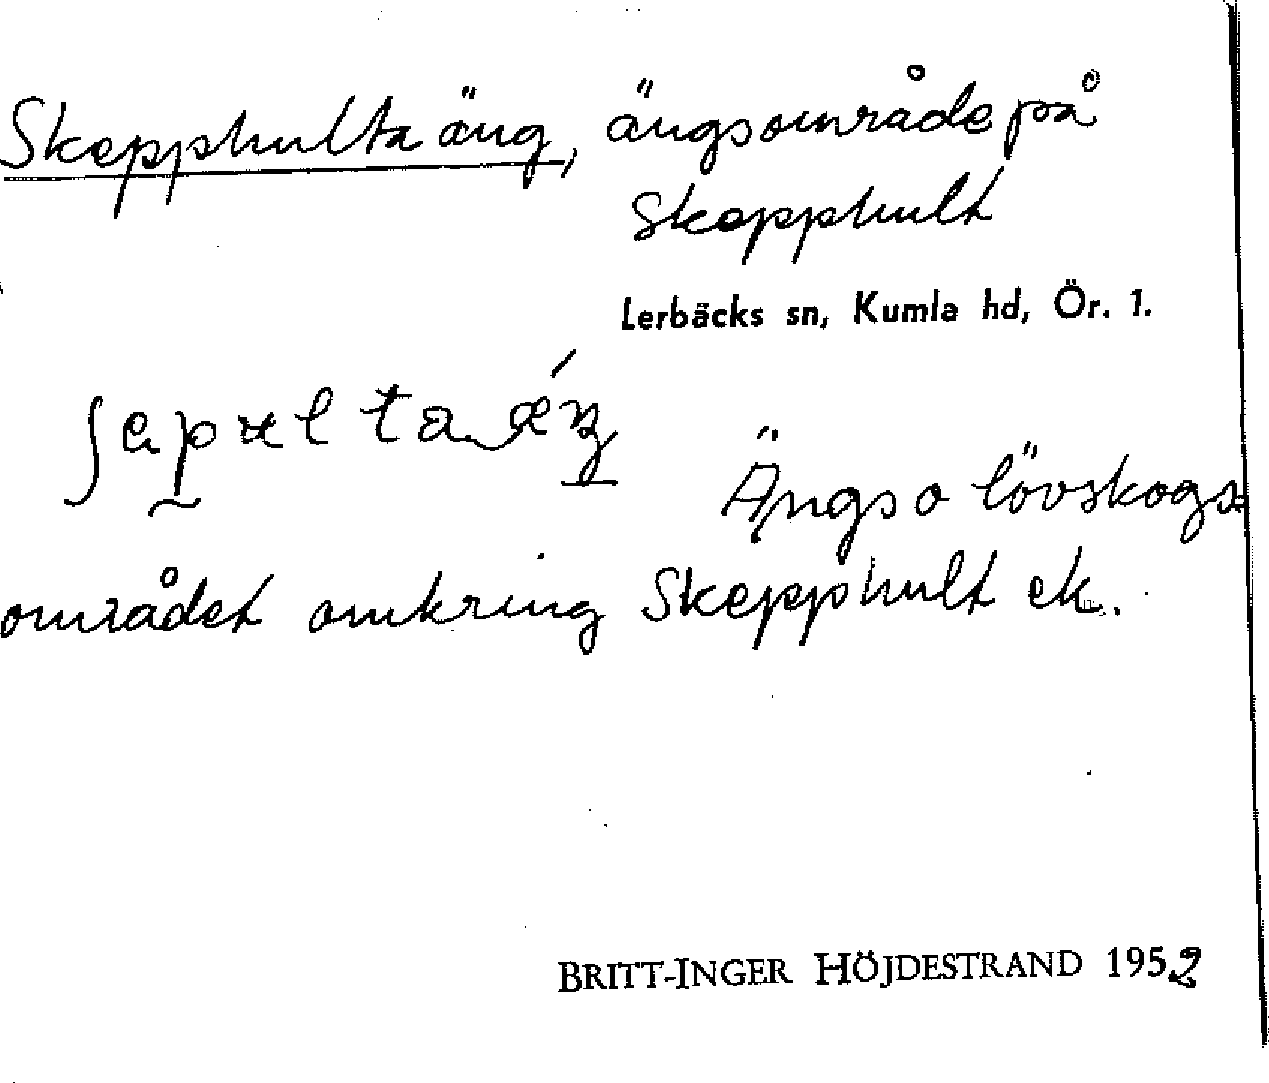 Skepphulta äng, ängsområde på
Skepphult
Lerbäcks sn, Kumla hd, Ör. 1.
Ängs o lövskogs-
området omkring Skepphult ek.
BRITT-INGER HÖJDESTRAND 1952